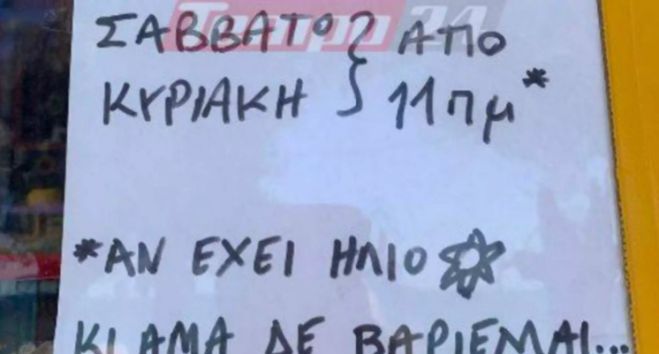 ΣΑΒΒΑΤΟ } ΑΠΟ
ΚΥΡΙΑΚΗ } 11πμ*
*ΑΝ ΕΧΕΙ ΗΛΙΟ
ΚΙ ΑΜΑ ΔΕ ΒΑΡΙΕΜΑΙ...